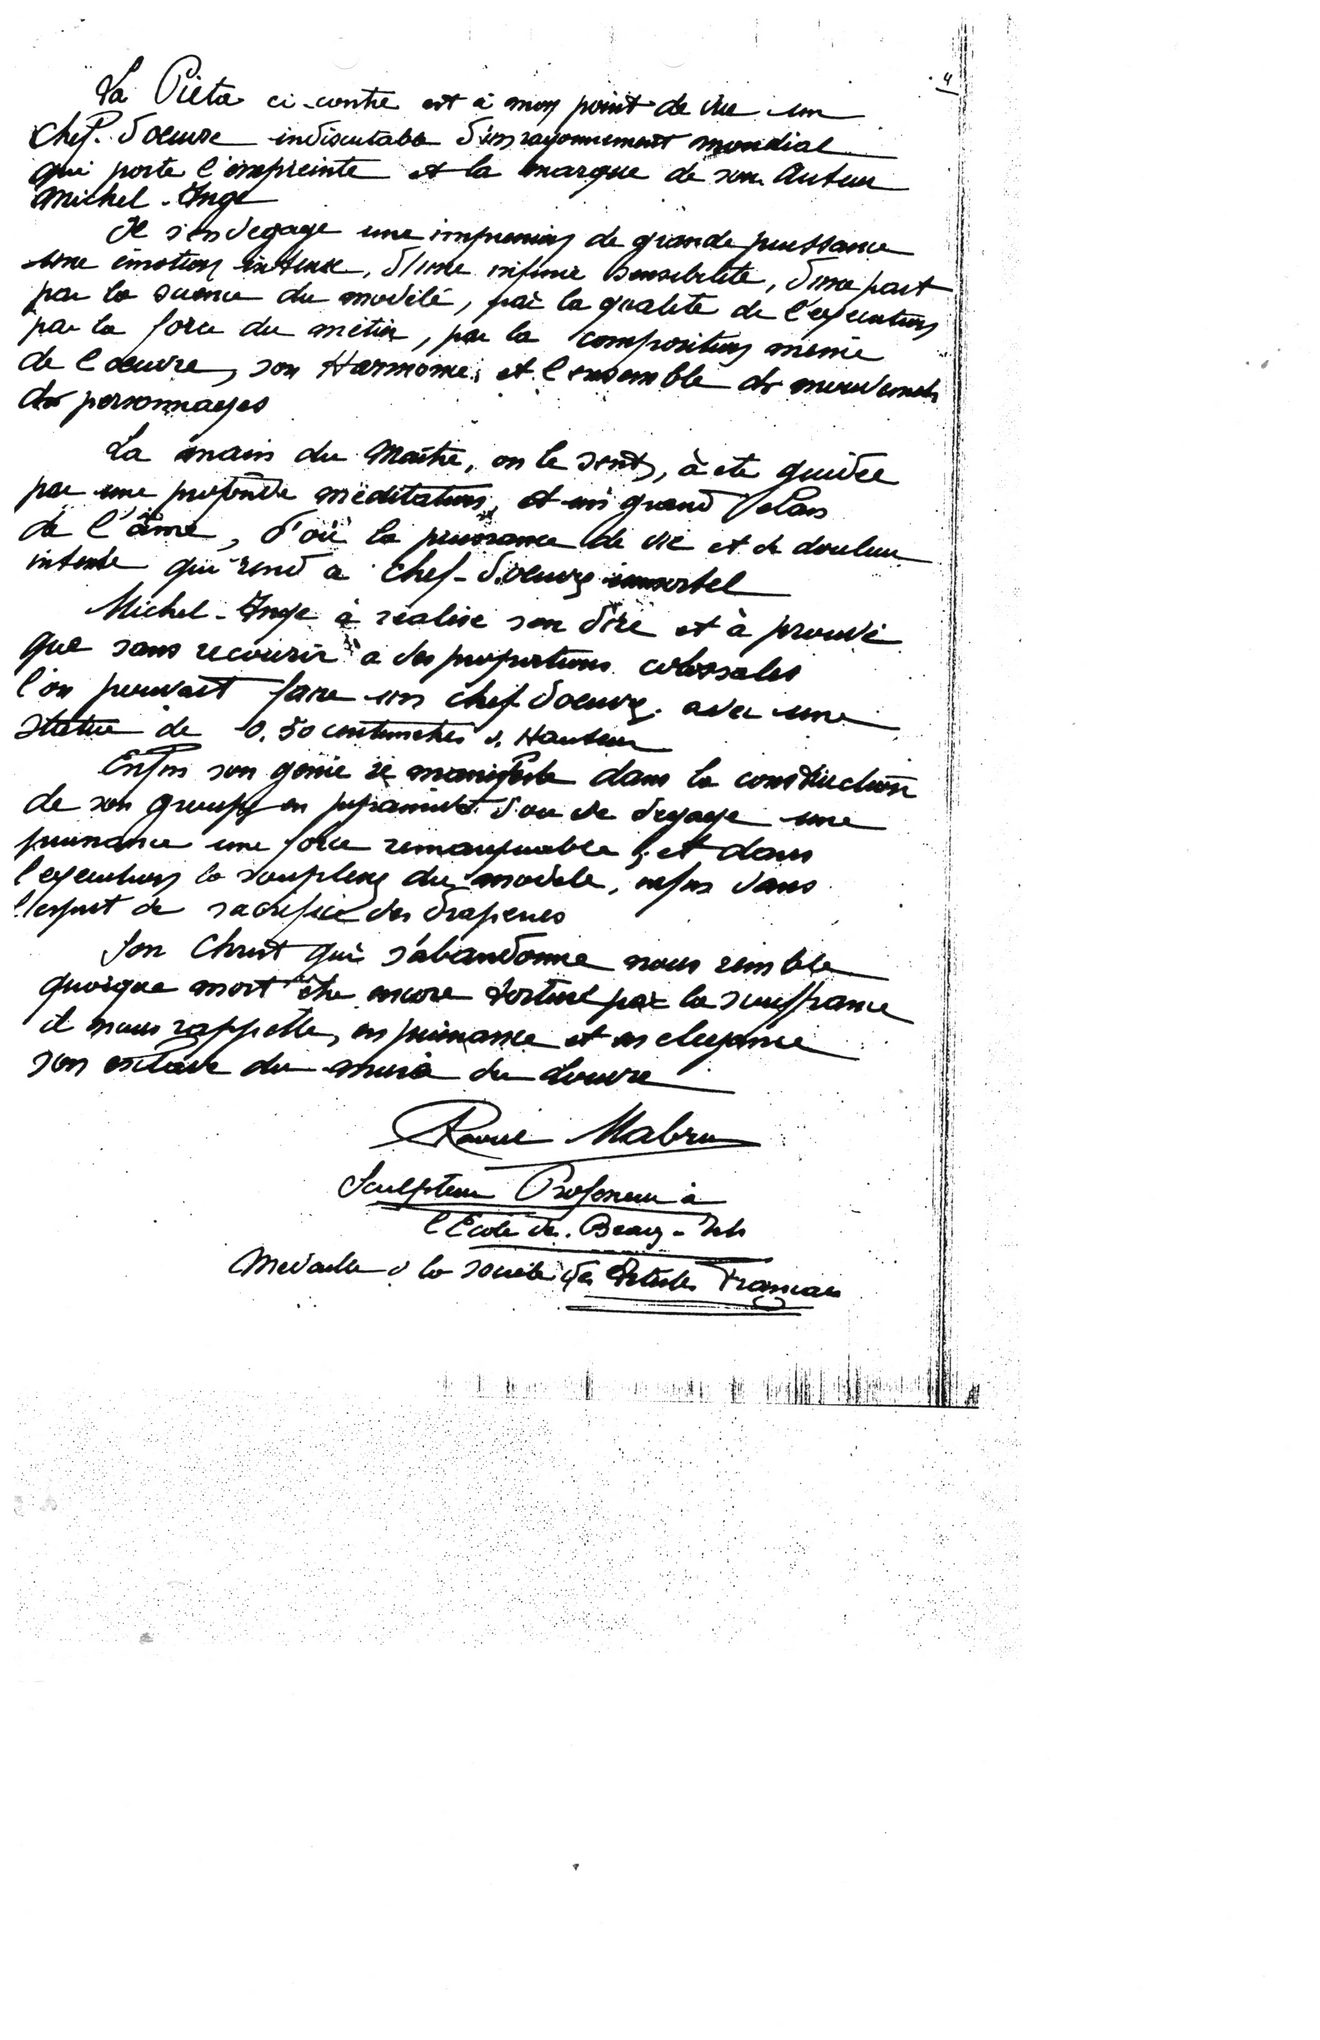 4
La Pieta ci-contre est à mon point de vue un
Chef. d'oeuvre indiscutable d'un rayonnement mondial
qui porte l'empreinte et la marque de son Auteur
Michel-Ange
Il s'en dégage une impression de grande puissance
une émotion intense, d'une infinie sensibilité, d'une part
par la science du modelé, par la qualité de l'execution
par la force du métier, par la composition même
de l'oeuvre, son Harmonie, et l'ensemble des mouvements
des personnages
La main du Maître, on le sent, à ete guidée
par une profonde méditation, et un grand elan
de l'âme, d'où la puissance de vie et de douleur
intense qui rend ce chef-d'oeuvre immortel
Michel-Ange à réalisé son dire et à prouvé
que sans recourir a des proportions colossales
l'on pouvait faire un chef d'oeuvre. avec une
statue de 0.50 centimetres d. Hauteur
Enfin son génie se manifeste dans la construction
de son groupe en pyramide d'ou se degage une
puissance une force remarquable, et dans
l'execution la souplesse du modelé, enfin dans
l'esprit de sacrifice des draperies
Son Christ qui s'abandonne nous semble
quoique mort être encore torturé par la souffrance
il nous rappelle, en puissance et en elegance
son esclave du musée du Louvre
Mabru
Sculpteur Professeur à
l'Ecole des. Beaux-Arts
Médaillé d la société des Artistes Français